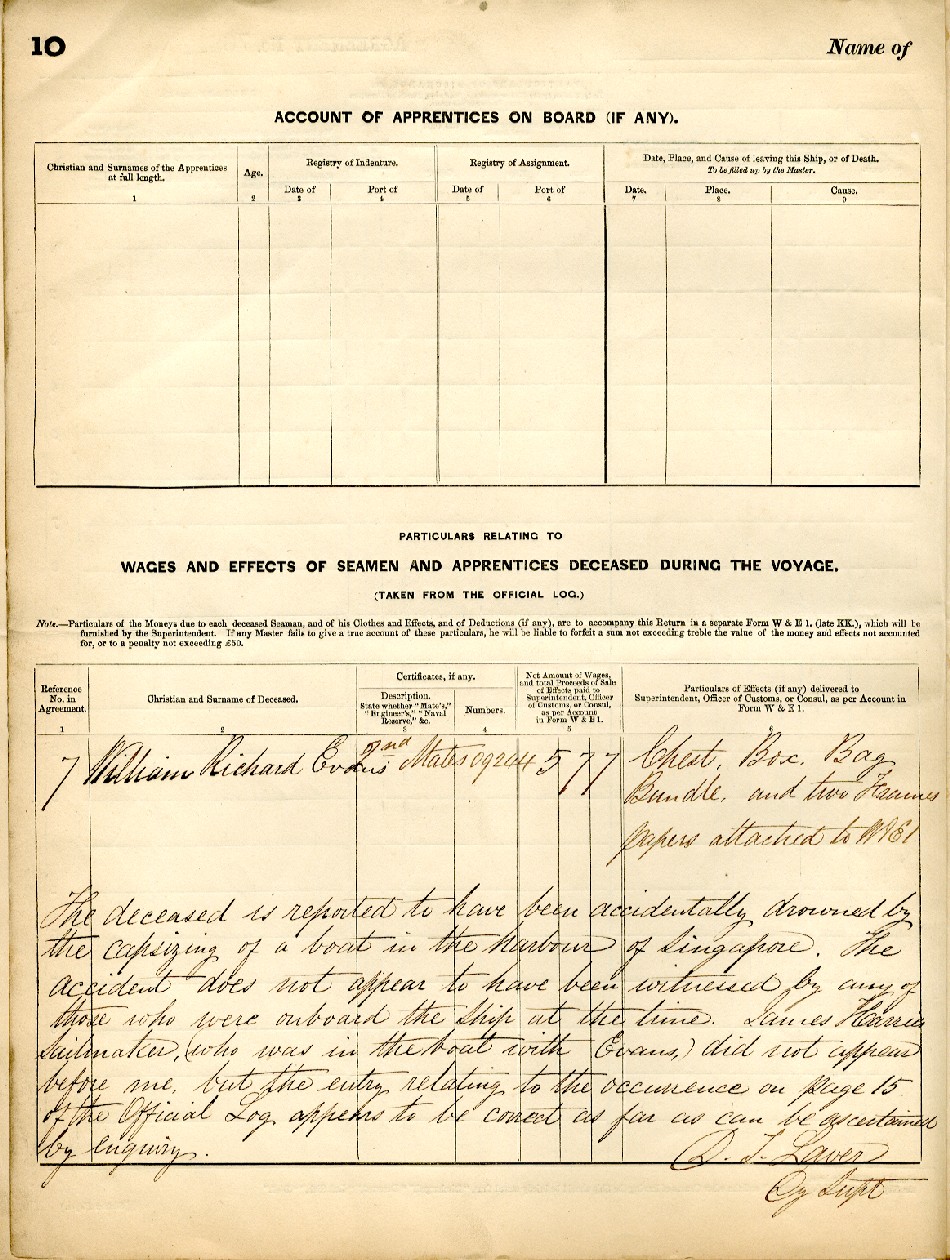 10
Name of
ACCOUNT OF APPRENTICES ON BOARD (IF ANY).
Christian and Surnames of the Apprentices at full length.
Age.
Registry of Indenture.
Registry of Assignment.
Date, Place, and Cause of leaving this Ship, or of Death.
To be filled up by the Master.
Date of
Port of
Date of
Port of
Date.
Place.
Cause.
1 2 3 4 5 6 7 8 9
PARTICULARS RELATING TO
WAGES AND EFFECTS OF SEAMEN AND APPRENTICES DECEASED DURING THE VOYAGE.
(TAKEN FROM THE OFFICIAL LOG.)
Note.—Particulars of the Moneys due to each deceased Seaman, and of his Clothes and Effects, and of Deductions (if any), are to accompany this Return in a separate Form W & E 1. (late KK.), which will be
furnished by the Superintendent. If any Master fails to give a true account of these particulars, he will be liable to forfeit a sum not exceeding treble the value of the money and effects not accounted
for, or to a penalty not exceeding £50.
Reference No. in Agreement.
Christian and Surname of Deceased.
Certificates, if any.
Description.
State whether "Mate's," "Engineer's," "Naval Reserve," &c.
Numbers.
Net Amount of Wages, and total Proceeds of Sale of Effects paid to Superintendent, Officer of Customs, or Consul, as per Account in Form W & E 1.
Particulars of Effects (if any) delivered to Superintendent, Officer of Customs, or Consul, as per Account in Form W & E 1.
1 2 3 4 5 6
7 William Richard Evans 2nd Mates 09244 5 7 7 Chest, Box, Bag
Bundle, and two Frames
papers attached to W&E1
The deceased is reported to have been accidentally drowned by
the capsizing of a boat in the harbour of Singapore. The
accident does not appear to have been witnessed by any of
those who were onboard the ship at the time. James Harris
Sailmaker, (who was in the boat with Evans,) did not appear
before me, but the entry relating to the occurrence on page 15
of the Official Log appears to be correct as far as can be ascertained
by enquiry.
D. J. Laver
Dy Supt